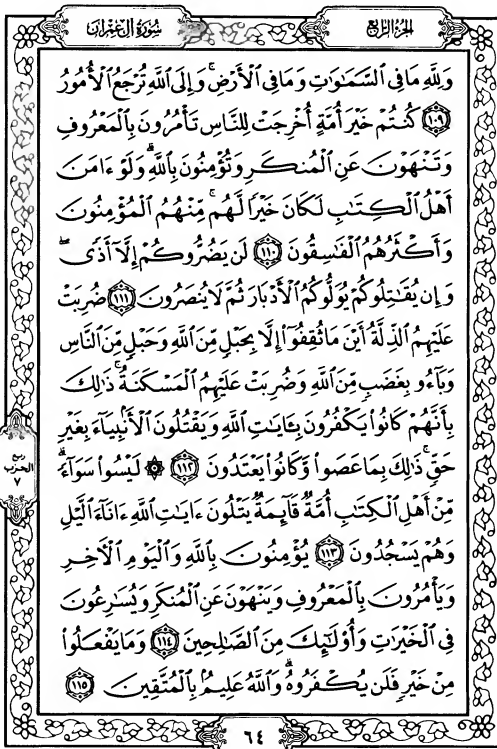 سُورَةُ آلِ عِمْرَانَ
الجُزْءُ الرَّابِعُ
وَلِلَّهِ مَا فِي السَّمَاوَاتِ وَمَا فِي الْأَرْضِ ۚ وَإِلَى اللَّهِ تُرْجَعُ الْأُمُورُ
١٠٩ كُنتُمْ خَيْرَ أُمَّةٍ أُخْرِجَتْ لِلنَّاسِ تَأْمُرُونَ بِالْمَعْرُوفِ
وَتَنْهَوْنَ عَنِ الْمُنكَرِ وَتُؤْمِنُونَ بِاللَّهِ ۗ وَلَوْ ءَامَنَ
أَهْلُ الْكِتَابِ لَكَانَ خَيْرًا لَّهُم ۚ مِّنْهُمُ الْمُؤْمِنُونَ
وَأَكْثَرُهُمُ الْفَاسِقُونَ ١١٠ لَن يَضُرُّوكُمْ إِلَّا أَذًى ۖ
وَإِن يُقَاتِلُوكُمْ يُوَلُّوكُمُ الْأَدْبَارَ ثُمَّ لَا يُنصَرُونَ ١١١ ضُرِبَتْ
عَلَيْهِمُ الذِّلَّةُ أَيْنَ مَا ثُقِفُوا إِلَّا بِحَبْلٍ مِّنَ اللَّهِ وَحَبْلٍ مِّنَ النَّاسِ
وَبَاءُو بِغَضَبٍ مِّنَ اللَّهِ وَضُرِبَتْ عَلَيْهِمُ الْمَسْكَنَةُ ۚ ذَٰلِكَ
بِأَنَّهُمْ كَانُوا يَكْفُرُونَ بِـَٔايَاتِ اللَّهِ وَيَقْتُلُونَ الْأَنبِيَاءَ بِغَيْرِ
حَقٍّ ۚ ذَٰلِكَ بِمَا عَصَوا وَّكَانُوا يَعْتَدُونَ ١١٢ ۞ لَيْسُوا سَوَاءً ۗ
مِّنْ أَهْلِ الْكِتَابِ أُمَّةٌ قَائِمَةٌ يَتْلُونَ ءَايَاتِ اللَّهِ ءَانَاءَ اللَّيْلِ
وَهُمْ يَسْجُدُونَ ١١٣ يُؤْمِنُونَ بِاللَّهِ وَالْيَوْمِ الْآخِرِ
وَيَأْمُرُونَ بِالْمَعْرُوفِ وَيَنْهَوْنَ عَنِ الْمُنكَرِ وَيُسَارِعُونَ
فِي الْخَيْرَاتِ وَأُولَٰئِكَ مِنَ الصَّالِحِينَ ١١٤ وَمَا يَفْعَلُوا
مِنْ خَيْرٍ فَلَن يُكْفَرُوهُ ۗ وَاللَّهُ عَلِيمٌ بِالْمُتَّقِينَ ١١٥
ربع
الحزب
٧
٦٤